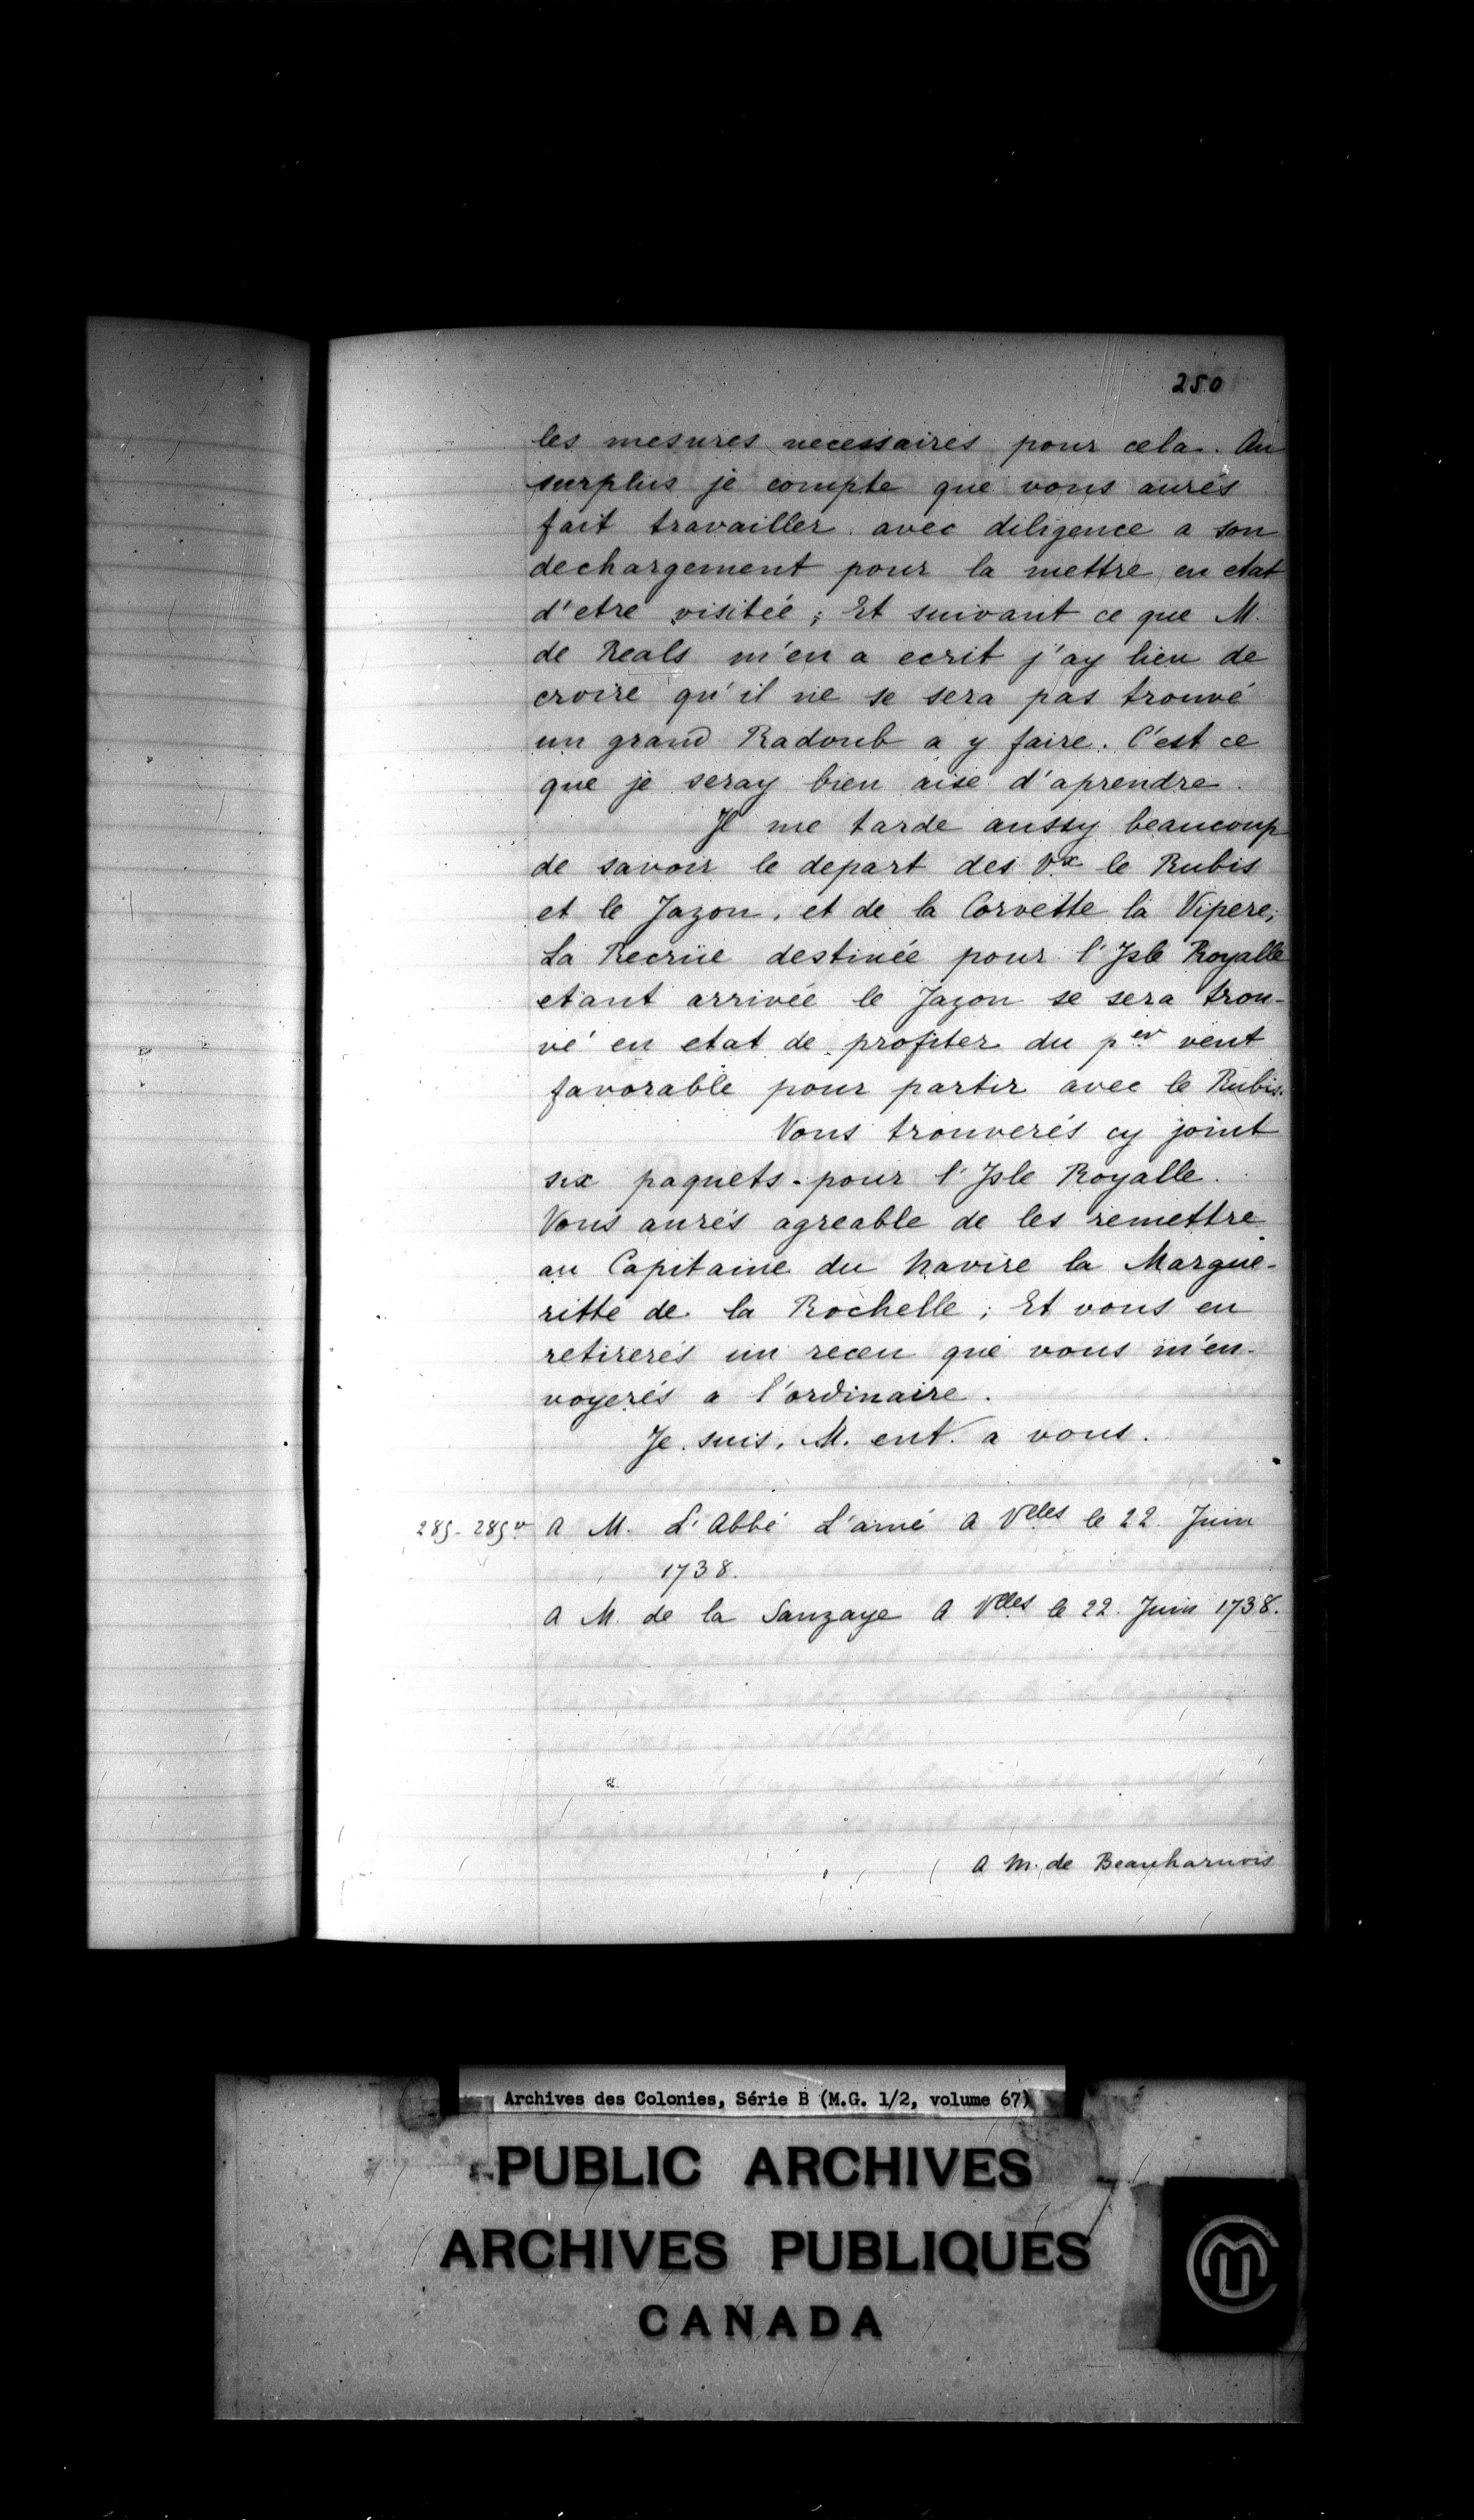 250
les mesures necessaires pour cela. Au
surplus je compte que vous aurés
fait travailler avec diligence a son
dechargement pour la mettre en etat
d'etre visitée; Et suivant ce que M.
de Reals m'en a ecrit j'ay lieu de
croire qu'il ne se sera pas trouvé
un grand Radoub a y faire. C'est ce
que je seray bien aise d'aprendre.
Il me tarde aussy beaucoup
de savoir le depart des Vx le Rubis
et le Jazon, et de la Corvette la Vipere;
La Recrüe destinée pour l'Isle Royalle
etant arrivée le Jazon se sera trou-
vé en etat de profiter du per vent
favorable pour partir avec le Rubis.
Vous trouverés cy joint
six paquets pour l'Isle Royalle.
Vous aurés agreable de les remettre
au Capitaine du Navire la Margue-
ritte de la Rochelle; Et vous en
retirerés un receu que vous m'en-
voyerés a l'ordinaire.
Je suis, M. ent. a vous.
285-285v A M. L'Abbé L'amé A Vlles le 22 Juin
1738.
A M. de la Sauzaye A Vlles le 22 Juin 1738.
A M. de Beauharnois
Archives des Colonies, Série B (M.G. 1/2, volume 67)
PUBLIC ARCHIVES
ARCHIVES PUBLIQUES
CANADA